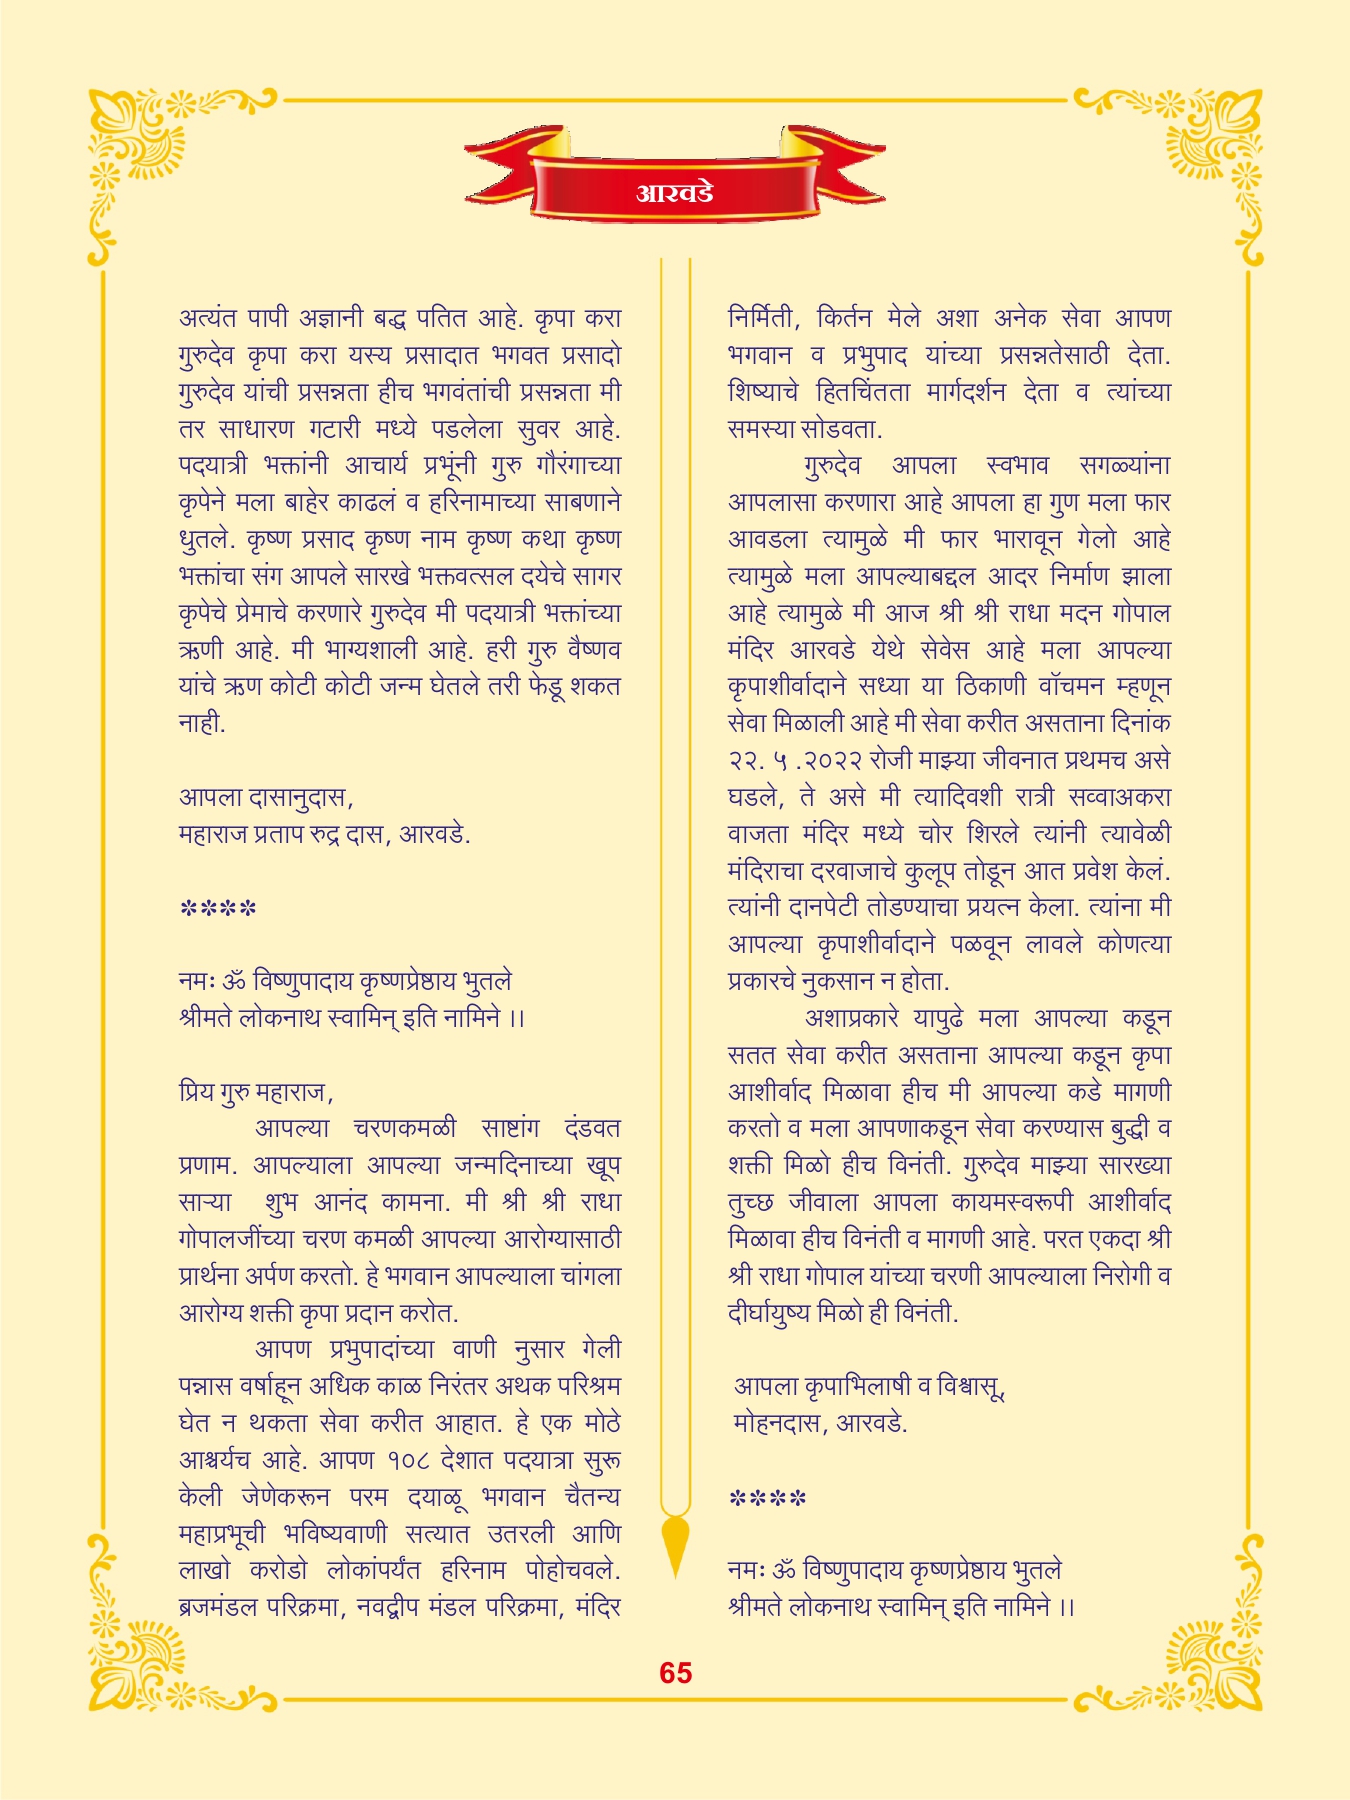 आरवडे
अत्यंत पापी अज्ञानी बद्ध पतित आहे. कृपा करा
गुरुदेव कृपा करा यस्य प्रसादात भगवत प्रसादो
गुरुदेव यांची प्रसन्नता हीच भगवंतांची प्रसन्नता मी
तर साधारण गटारी मध्ये पडलेला सुवर आहे.
पदयात्री भक्तांनी आचार्य प्रभूंनी गुरु गौरंगाच्या
कृपेने मला बाहेर काढलं व हरिनामाच्या साबणाने
धुतले. कृष्ण प्रसाद कृष्ण नाम कृष्ण कथा कृष्ण
भक्तांचा संग आपले सारखे भक्तवत्सल दयेचे सागर
कृपेचे प्रेमाचे करणारे गुरुदेव मी पदयात्री भक्तांच्या
ऋणी आहे. मी भाग्यशाली आहे. हरी गुरु वैष्णव
यांचे ऋण कोटी कोटी जन्म घेतले तरी फेडू शकत
नाही.
आपला दासानुदास,
महाराज प्रताप रुद्र दास, आरवडे.
****
नमः ॐ विष्णुपादाय कृष्णप्रेष्ठाय भुतले
श्रीमते लोकनाथ स्वामिन् इति नामिने ।।
प्रिय गुरु महाराज,
आपल्या चरणकमळी साष्टांग दंडवत
प्रणाम. आपल्याला आपल्या जन्मदिनाच्या खूप
साऱ्या शुभ आनंद कामना. मी श्री श्री राधा
गोपालजींच्या चरण कमळी आपल्या आरोग्यासाठी
प्रार्थना अर्पण करतो. हे भगवान आपल्याला चांगला
आरोग्य शक्ती कृपा प्रदान करोत.
आपण प्रभुपादांच्या वाणी नुसार गेली
पन्नास वर्षाहून अधिक काळ निरंतर अथक परिश्रम
घेत न थकता सेवा करीत आहात. हे एक मोठे
आश्चर्यच आहे. आपण १०८ देशात पदयात्रा सुरू
केली जेणेकरून परम दयाळू भगवान चैतन्य
महाप्रभूची भविष्यवाणी सत्यात उतरली आणि
लाखो करोडो लोकांपर्यंत हरिनाम पोहोचवले.
ब्रजमंडल परिक्रमा, नवद्वीप मंडल परिक्रमा, मंदिर
निर्मिती, किर्तन मेले अशा अनेक सेवा आपण
भगवान व प्रभुपाद यांच्या प्रसन्नतेसाठी देता.
शिष्याचे हितचिंतता मार्गदर्शन देता व त्यांच्या
समस्या सोडवता.
गुरुदेव आपला स्वभाव सगळ्यांना
आपलासा करणारा आहे आपला हा गुण मला फार
आवडला त्यामुळे मी फार भारावून गेलो आहे
त्यामुळे मला आपल्याबद्दल आदर निर्माण झाला
आहे त्यामुळे मी आज श्री श्री राधा मदन गोपाल
मंदिर आरवडे येथे सेवेस आहे मला आपल्या
कृपाशीर्वादाने सध्या या ठिकाणी वॉचमन म्हणून
सेवा मिळाली आहे मी सेवा करीत असताना दिनांक
२२. ५ .२०२२ रोजी माझ्या जीवनात प्रथमच असे
घडले, ते असे मी त्यादिवशी रात्री सव्वाअकरा
वाजता मंदिर मध्ये चोर शिरले त्यांनी त्यावेळी
मंदिराचा दरवाजाचे कुलूप तोडून आत प्रवेश केलं.
त्यांनी दानपेटी तोडण्याचा प्रयत्न केला. त्यांना मी
आपल्या कृपाशीर्वादाने पळवून लावले कोणत्या
प्रकारचे नुकसान न होता.
अशाप्रकारे यापुढे मला आपल्या कडून
सतत सेवा करीत असताना आपल्या कडून कृपा
आशीर्वाद मिळावा हीच मी आपल्या कडे मागणी
करतो व मला आपणाकडून सेवा करण्यास बुद्धी व
शक्ती मिळो हीच विनंती. गुरुदेव माझ्या सारख्या
तुच्छ जीवाला आपला कायमस्वरूपी आशीर्वाद
मिळावा हीच विनंती व मागणी आहे. परत एकदा श्री
श्री राधा गोपाल यांच्या चरणी आपल्याला निरोगी व
दीर्घायुष्य मिळो ही विनंती.
आपला कृपाभिलाषी व विश्वासू,
मोहनदास, आरवडे.
****
नमः ॐ विष्णुपादाय कृष्णप्रेष्ठाय भुतले
श्रीमते लोकनाथ स्वामिन् इति नामिने ।।
65